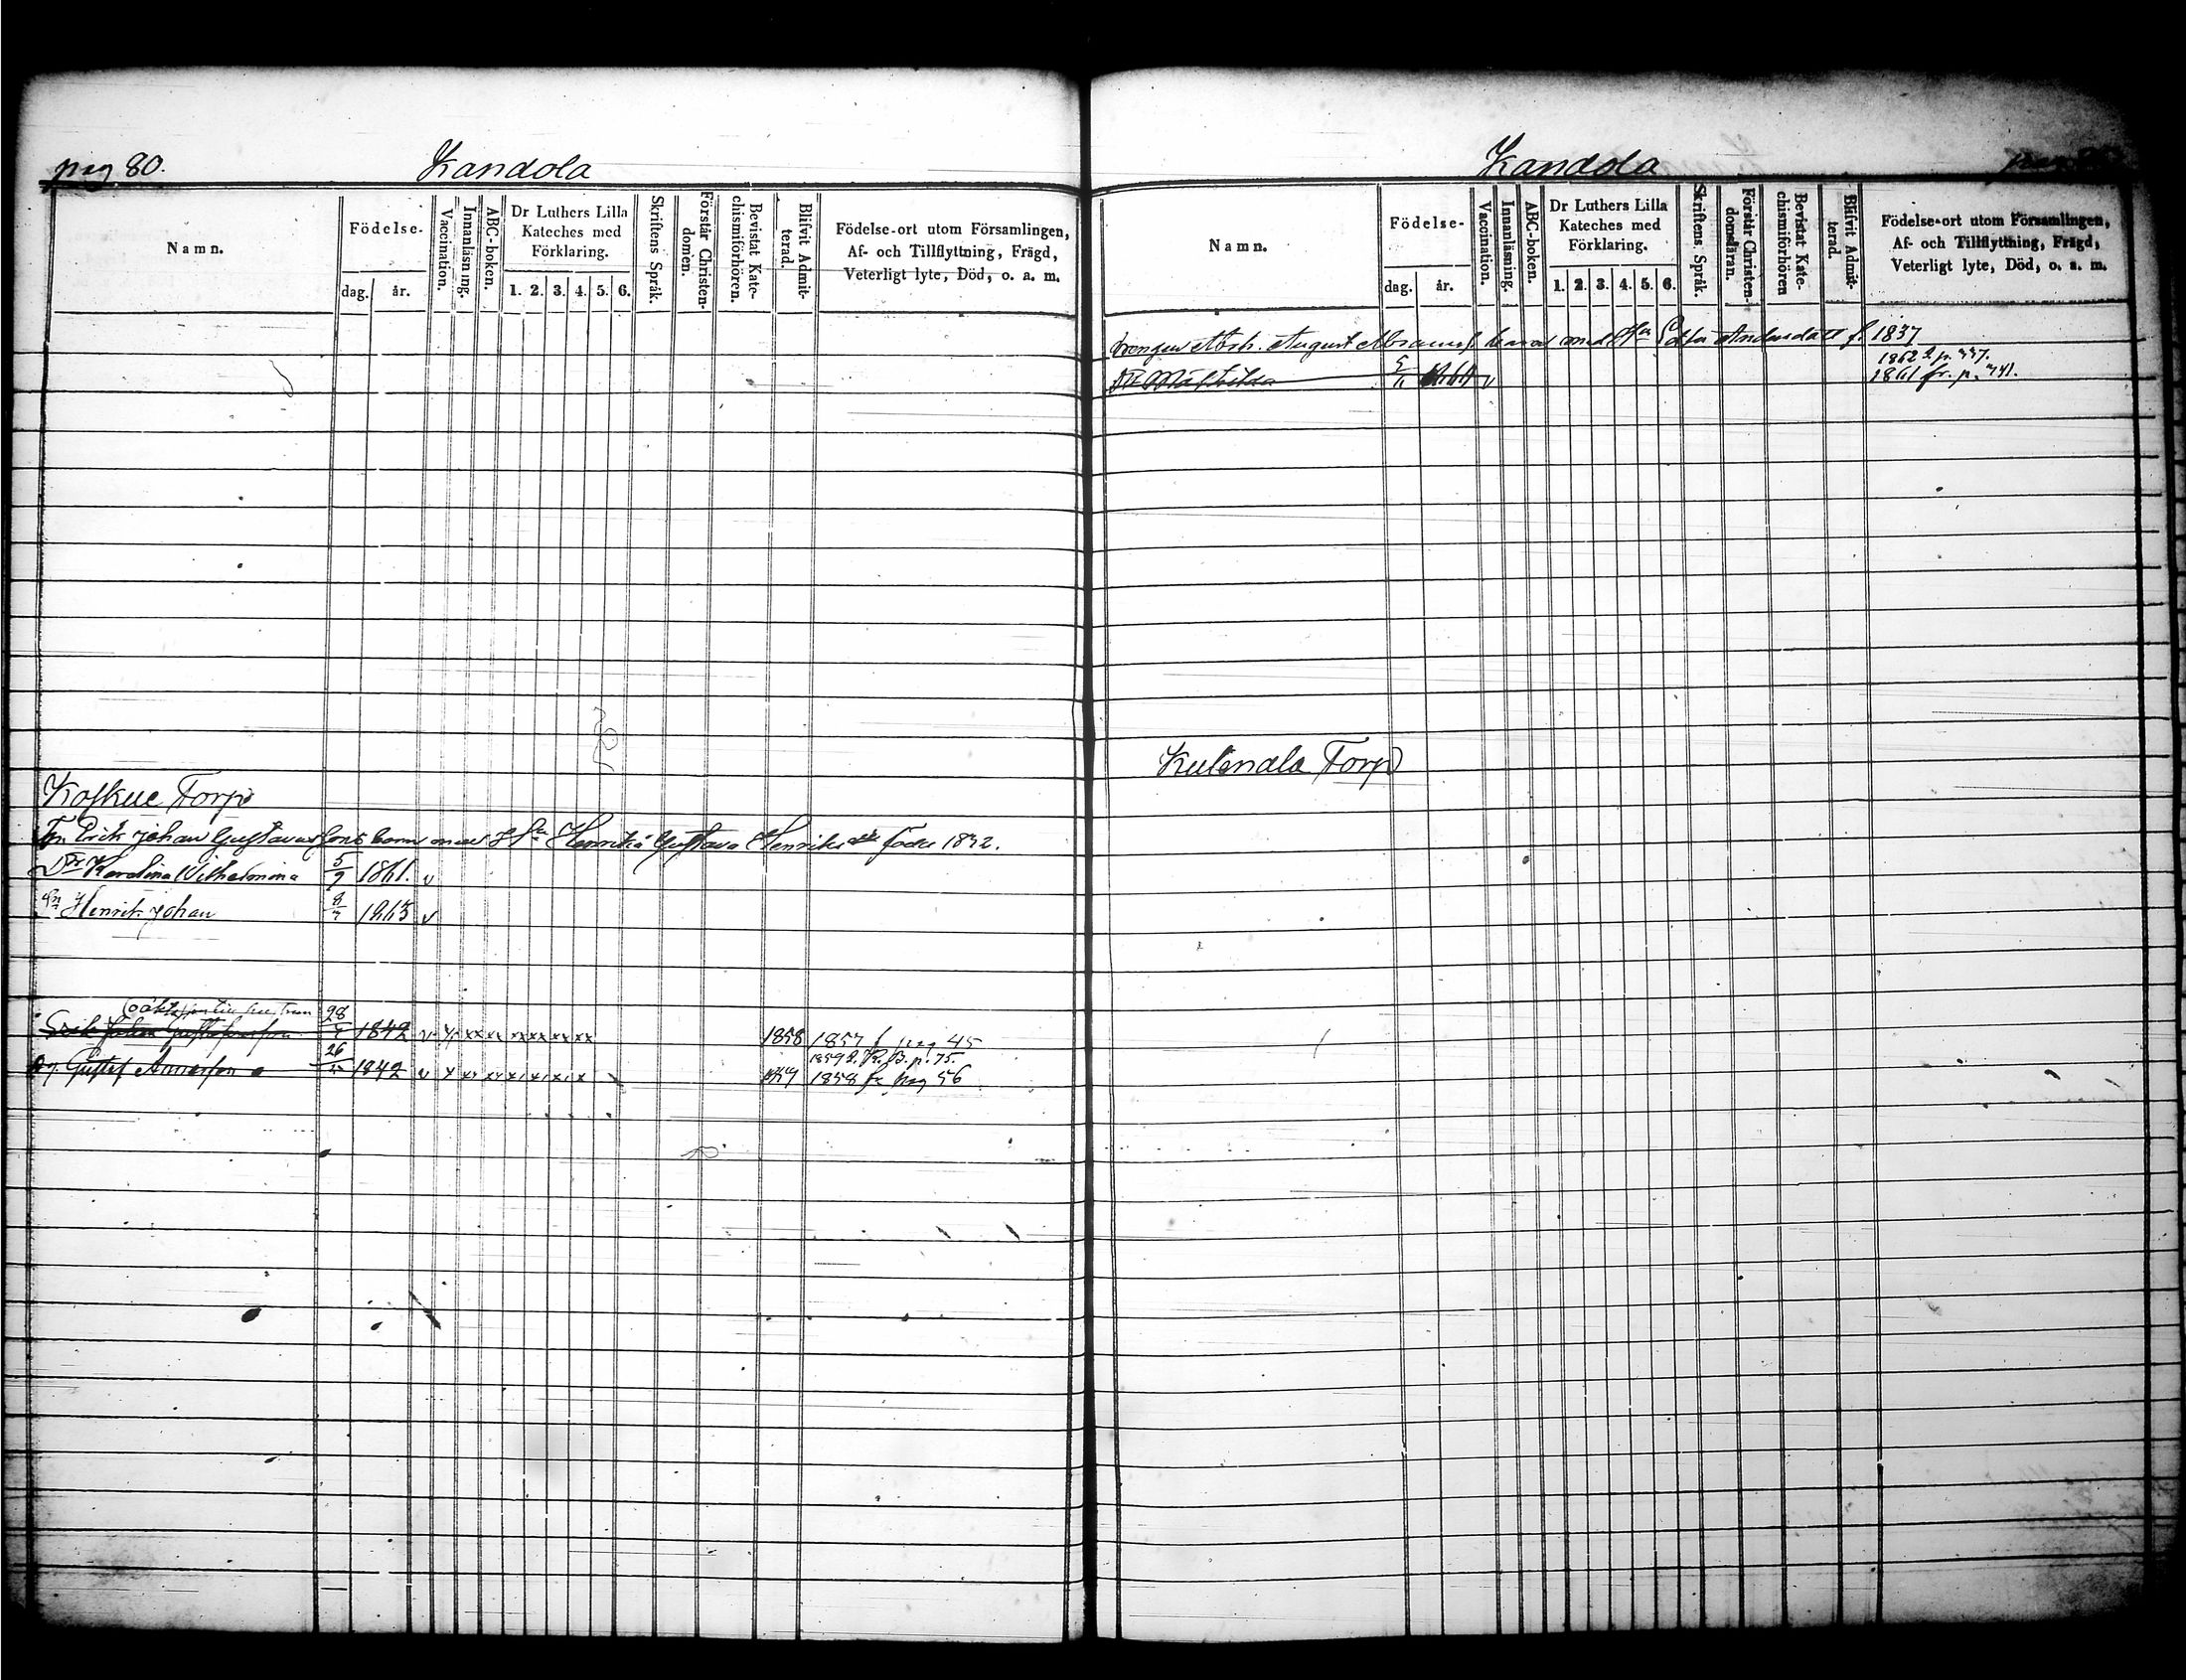 pag 80.
Kandola
Namn.
Födelse-
dag.
år.
Vaccination.
Innanläsning.
ABC-boken.
Dr Luthers Lilla
Kateches med
Förklaring.
1. 2. 3. 4. 5. 6.
Skriftens Språk.
Förstår Christen-
domen.
Bevistat Kate-
chismiförhören.
Blifvit Admit-
terad.
Födelse-ort utom Församlingen,
Af- och Tillflyttning, Frägd,
Veterligt lyte, Död, o. a. m.
Koskue Torp
Erik Johan Gustavus sons barn med Henrika Gustava Henriks född 1832.
Dr Karolina Vilhelmina 5/9 1861. v
Sn Henrik Johan 8/7 1863 v
(oäkta
Erik Johan Gustafsson 28 1842 v 1858 1857 f pag 45
1859 p. 75.
Gustaf Andersson 26 1842 v 1858 fr pag 56
Kandola
Namn.
Födelse-
dag.
år.
Vaccination.
Innanläsning.
ABC-boken.
Dr Luthers Lilla
Kateches med
Förklaring.
1. 2. 3. 4. 5. 6.
Skriftens Språk.
Förstår Christen-
domsläran.
Bevistat Kate-
chismiförhören
Blifvit Admit-
terad.
Födelse-ort utom Församlingen,
Af- och Tillflyttning, Frägd,
Veterligt lyte, Död, o. a. m.
August barn med Andersdotter f. 1837
1862
Dr Mathilda 5 v 1861 fr. p.
Kulmala Torp